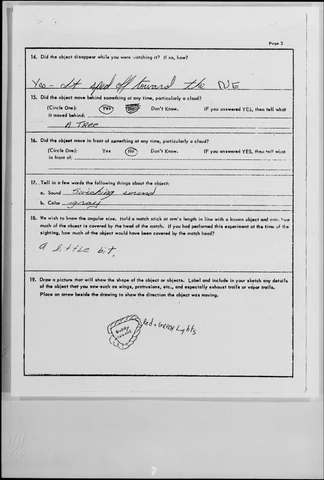 Page 3
14. Did the object disappear while you were watching it? If so, how?
Yes - It sped off toward the NE
15. Did the object move behind something at any time, particularly a cloud?
(Circle One): Yes Don't Know. IF you answered YES, then tell what
it moved behind:
A Tree
16. Did the object move in front of something at any time, particularly a cloud?
(Circle One): Yes No Don't Know. IF you answered YES, then tell what
in front of:
17. Tell in a few words the following things about the object:
a. Sound sound
b. Color gray
18. We wish to know the angular size. Hold a match stick at arm's length in line with a known object and note how
much of the object is covered by the head of the match. If you had performed this experiment at the time of the
sighting, how much of the object would have been covered by the match head?
a little bit.
19. Draw a picture that will show the shape of the object or objects. Label and include in your sketch any details
of the object that you saw such as wings, protrusions, etc., and especially exhaust trails or vapor trails.
Place an arrow beside the drawing to show the direction the object was moving.
Red + Green Lights